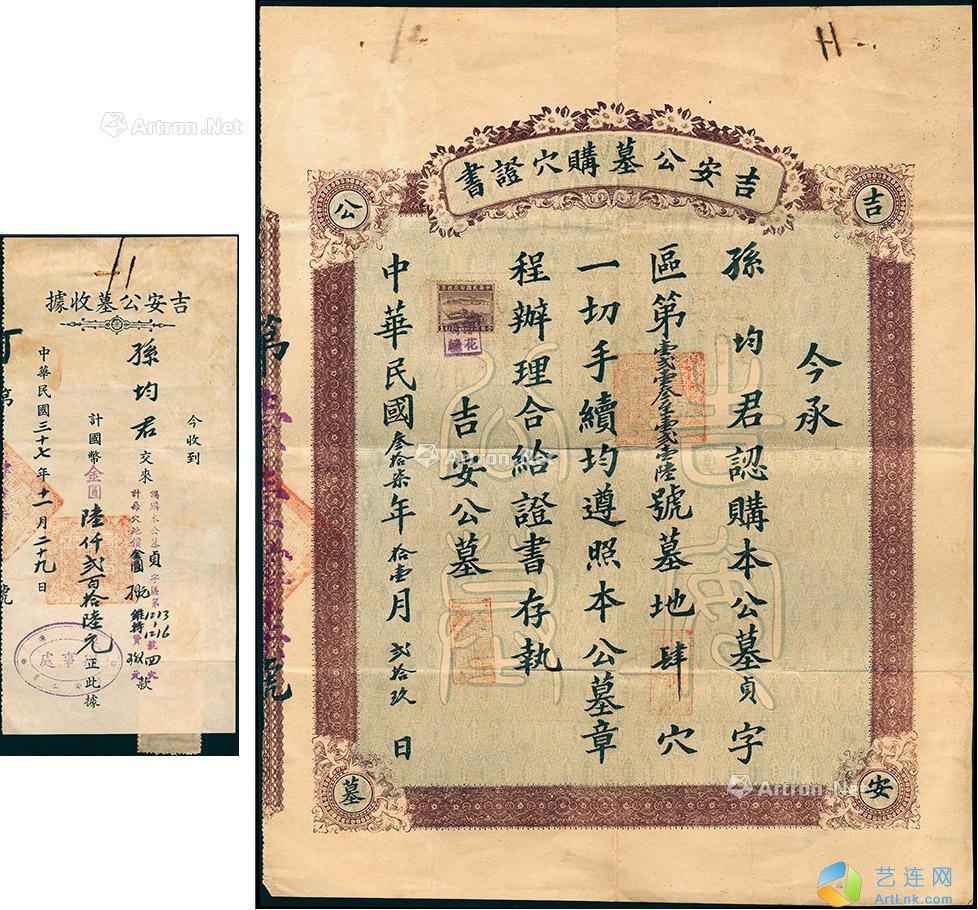 吉安公墓購穴證書
吉
安
公
墓
今承
孫均君認購本公墓貞字
區第壹貳壹叁至壹貳壹陸號墓地肆穴
一切手續均遵照本公墓章
程辦理合給證書存執
吉安公墓
中華民國叁拾柒年拾壹月貳拾玖日
吉安公墓收據
今收到
孫均君交來
貞字區第1213
1216號四穴
計國幣金圓陸仟貳百拾陸元正此據
中華民國三十七年十一月二十九日
事處
Artron.Net
Artron.Net
Artron.Net
Artron.Net
艺连网
ArtLnk.com